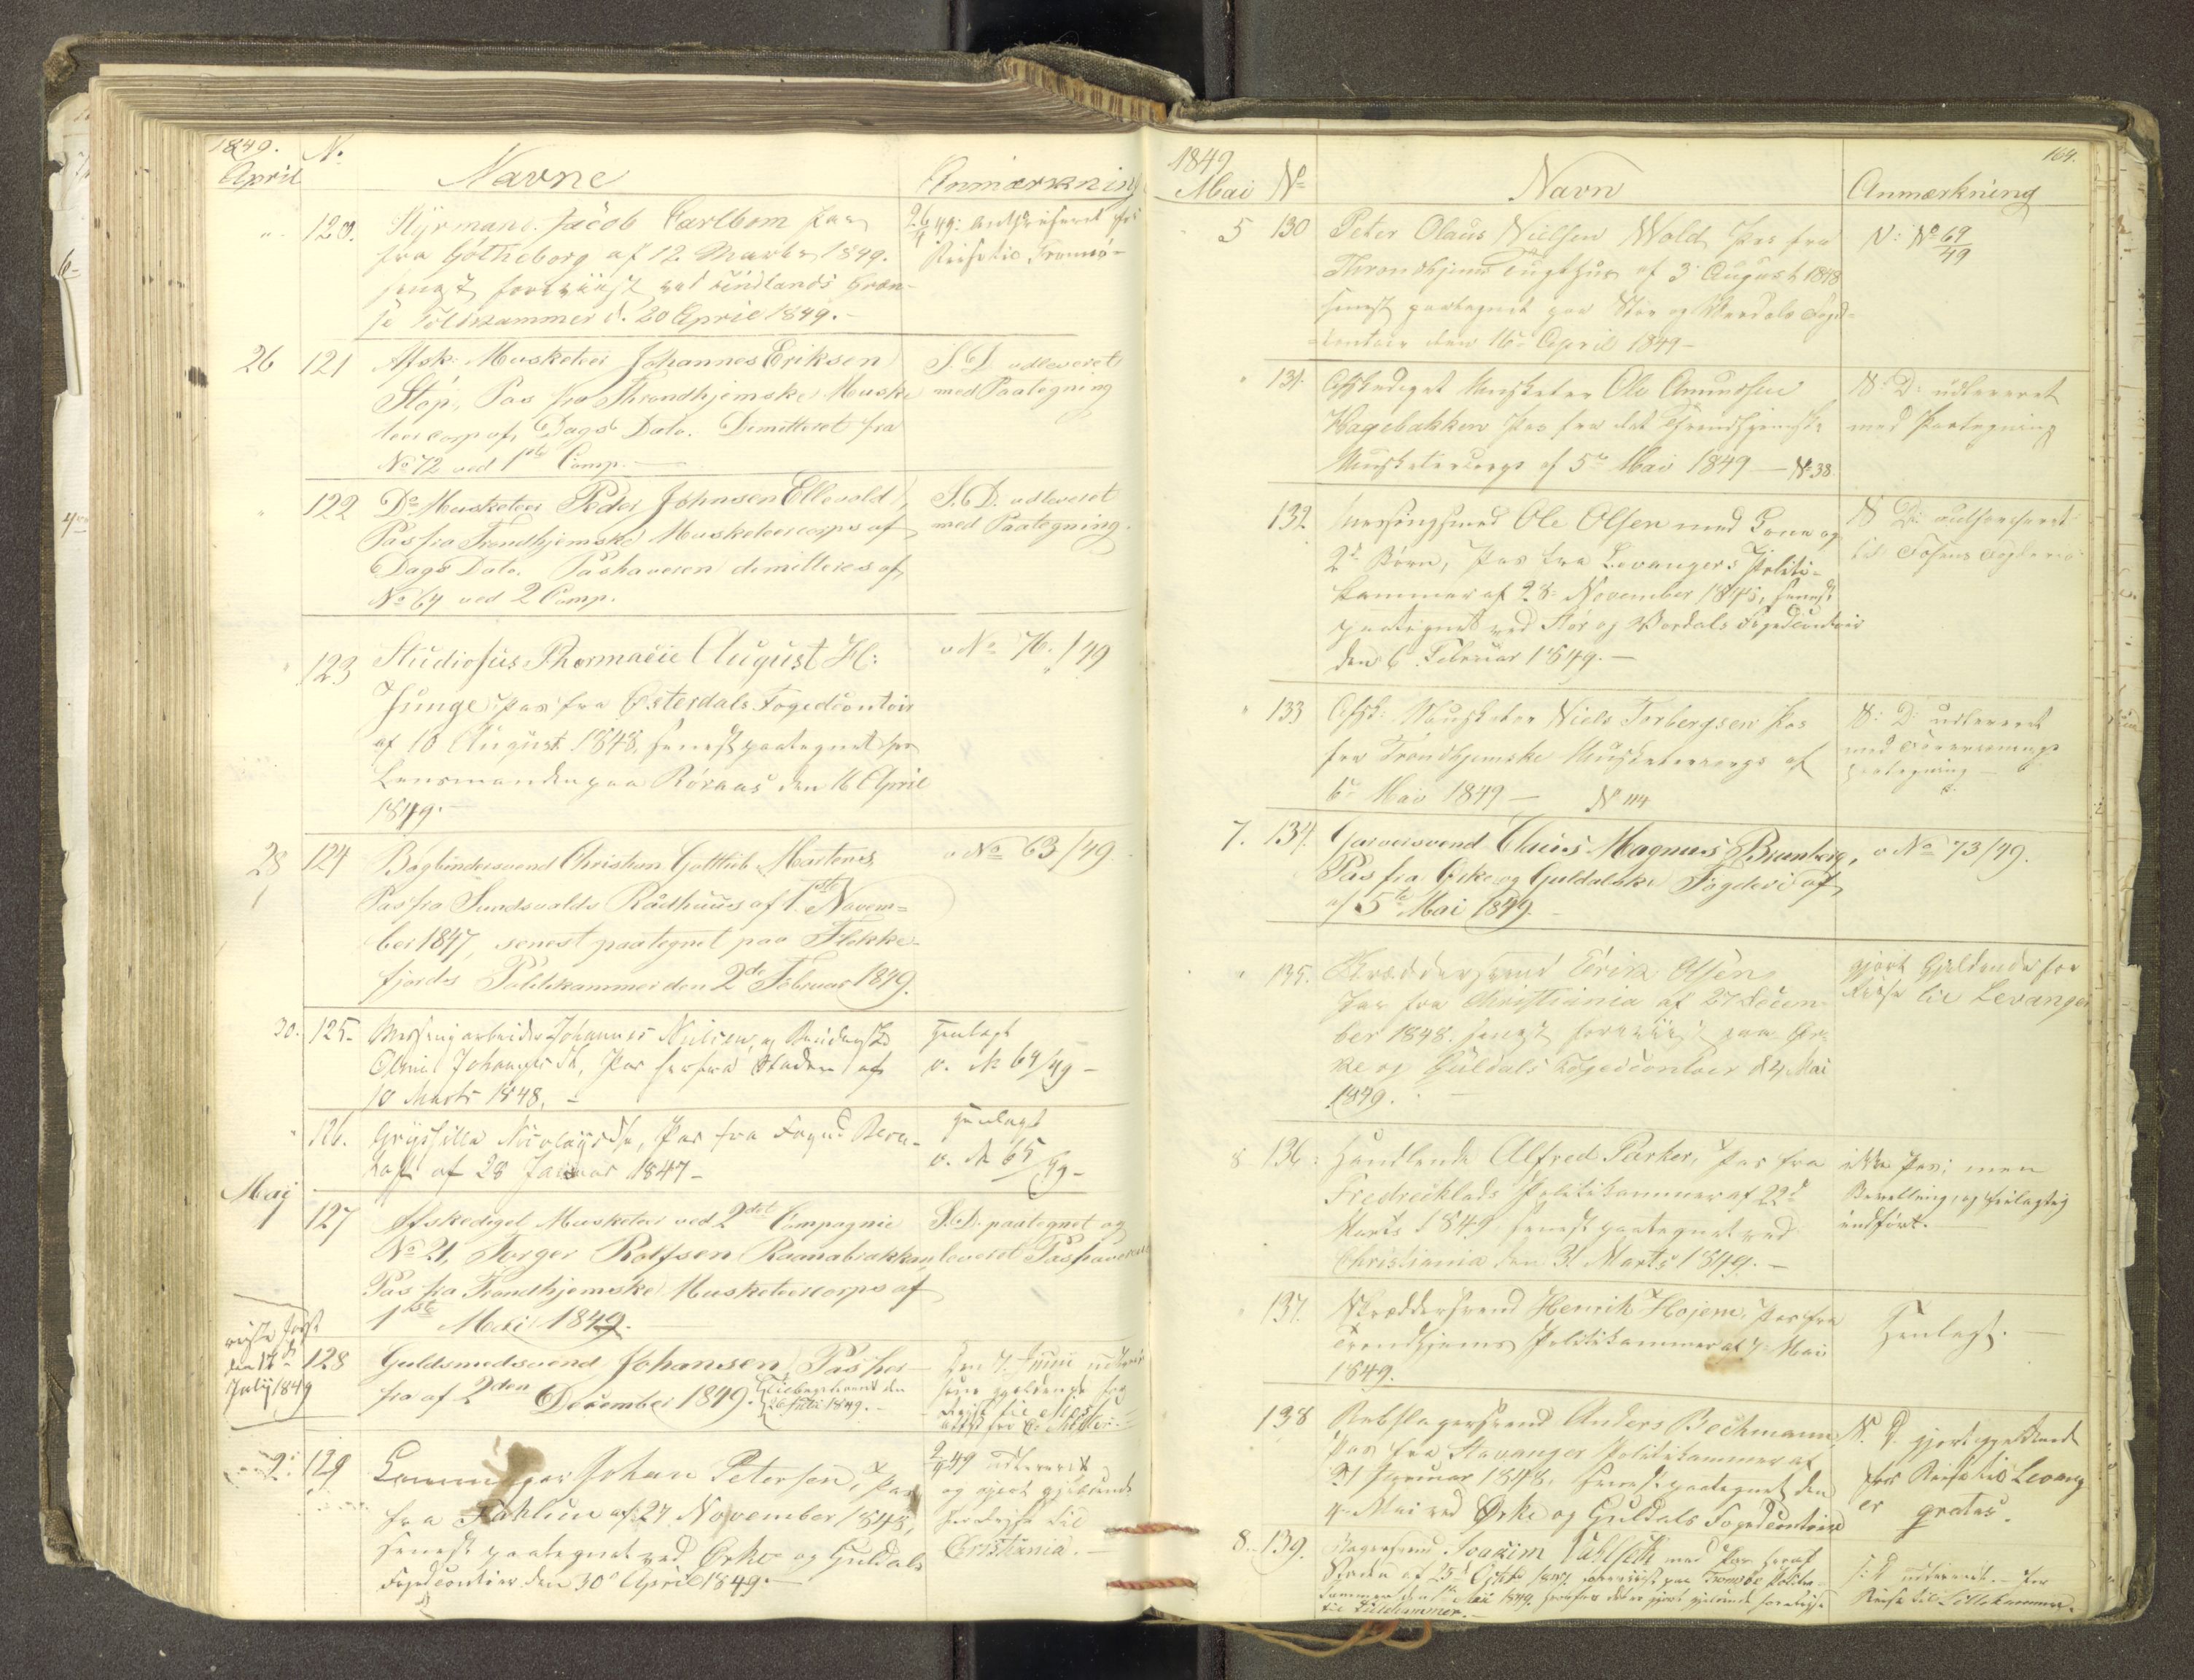 1849.
April
N.
Navne
Anmærkning
120. Styrmand Jacob Carlbom Pas
fra Götheborg af 12 Marts 1849.
senest foreviist ved Lindlands Græn-
se Toldkammer d. 20 April 1849.-
26/4 49:
Reise til Tromsö-
26 121 Afsk: Musketeer Johannes Eriksen
Stöp, Pas fra Throndhjemske Muske
teercorps af Dags Dato. Demitteret fra
No 72 ved 1ste Comp.-
S. D. udleveret
med Paategning
122 Do Musketeer Peder Johnsen Ellevold,
Pas fra Trondhjemske Musketeercorps af
Dags Dato. Pashaveren demitteres af
No 64 ved 2 Comp.
S. D. udleveret
med Paategning.
123 Studiosus Pharmacie August H:
Junge, Pas fra Østerdals Fogedcontoir
af 10 August 1848, senest paategnet fra
Lensmanden paa Röraas den 16 April
1849.-
v No 76./49
28 124 Bogbindersvend Christian Gottlieb Martens
Pas fra Sundsvalds Rådhuus af 1ste Novem=
ber 1847, senest paategnet paa Flekke-
fjords Politikammer den 2de Februar 1849.
v No 63/49.
30. 125- Messingarbeider Johannes Nielsen, og
Johannesdt, Pas herfra Staden af
10 Marts 1848. -
Henlagt
v. No 64/49 -
126. Nicolaysdtr, Pas fra Foged
af 28 Januar 1847-
Henlagt
v. No 65/49-
Maj
1 127 Afskediget Musketeer ved 2det Compagnie
No 21, Torger Rolfsen Raanabrakkan,
Pas fra Trondhjemske Musketeercorps af
1ste Mai 1849.
S. D. paategnet og
leveret Pashaveren
reiste først
den 17de
July 1849
128 Guldsmedsvend Johansen Pas her-
fra af 2den December 1849. Tilbageleveret den
26 Juli 1849.-
Den 7. Junii
2. 129 Johan Petersen, Pas
fra Fahlun af 27 November 1848,
senest paategnet ved Orke og Guldals
Fogedcontoir den 30 April 1849.-
2/5 49 udleveret
og gjort gjeldende
for Reise til
Cristiania.-
1849
Mai
No
Navn
Anmærkning
164.
5 130 Peter Olaus Nielsen Wold, Pas fra
Throndhjems Tugthus af 3 August 1848
senest paategnet paa Stør og Værdals Fogd=
contoir den 16 April 1849-
V: No 69/49
131. Afskediget Musketeer Ole Amundsen
Hagebakken Pas fra det Throndhjemske
Musketeercorps af 5te Mai 1849 - No 38
S: D: udleveret
med Paategning
132. Messingsmed Ole Olsen med Kone og
2de Børn, Pas fra Levangers Politi-
kammer af 28 November 1845, senest
paategnet ved Stör og Værdals Fogedcontoir
den 6 Februar 1849.-
S D:
til Fosens Fogderie
133 Afsk: Musketeer Niels Torbergsen Pas
fra Trondhjemske Musketeercorps af
6te Mai 1849 - No 114
S: D: udleveret
med
paategning -
7. 134. Garversvend Claus Magnus Brunberg,
Pas fra Orke og Guldalske Fogderi af
af 5te Mai 1849.
v No 73/49.
135. Skræddersvend Erik Olsen,
Pas fra Christiania af 27 Decem-
ber 1848. senest foreviist paa Or-
ke og Guldals Fogedcontoir d 4 Mai
1849. -
gjort Gjeldende for
Reise til Levanger
8 136. Handlende Alfred Parker, Pas fra
Fredrickstads Politikammer af 22d
Marts 1849, senest paategnet ved
Christiania den 31 Marts 1849.-
ikke Pas; men
Bevilling,
indført.-
137. Skræddersvend Henrik Hojem, Pas fra
Trondhjems Politikammer af 7 Mai
1849.
Henlagt.
138 Rebslagersvend Anders Bechmann,
Pas fra Stavanger Politikammer af
31 Januar 1848, senest paategnet den
4 Mai ved Orke og Guldals Fogedcontoir
S. D. gjort gjeldende
for Reise til Levang
er gratis.
8. 139. Bagersvend Joakim med Pas heraf
Staden af 25 foreviist paa Tromsöe Politie-
kammer den Mai 1849, herfra gjort gjeldende for Reise
til Lillehammer.-
S: D udleveret.- for
Reise til Lillehammer.